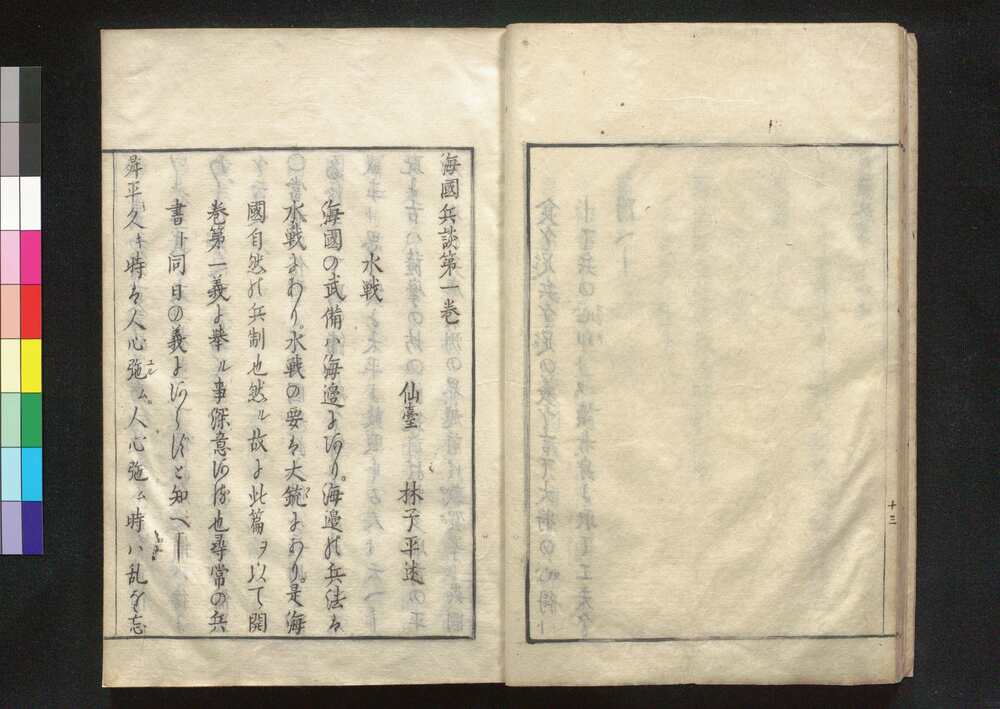 海國兵談第一巻
仙臺 林子平述
水戦
海國の武備ハ海邉よ阿り海邉の兵法ハ
水戦よあり水戦の要ハ大銃よあり是海
國自然の兵制也然ル故よ此篇ヲ以て開
巻第一義よ擧ル事深意阿る也尋常の兵
書ト同日の義よ阿らずと知へ
舜平久キ時ハ人心弛ム人心弛ム時ハ乱を忘
十三